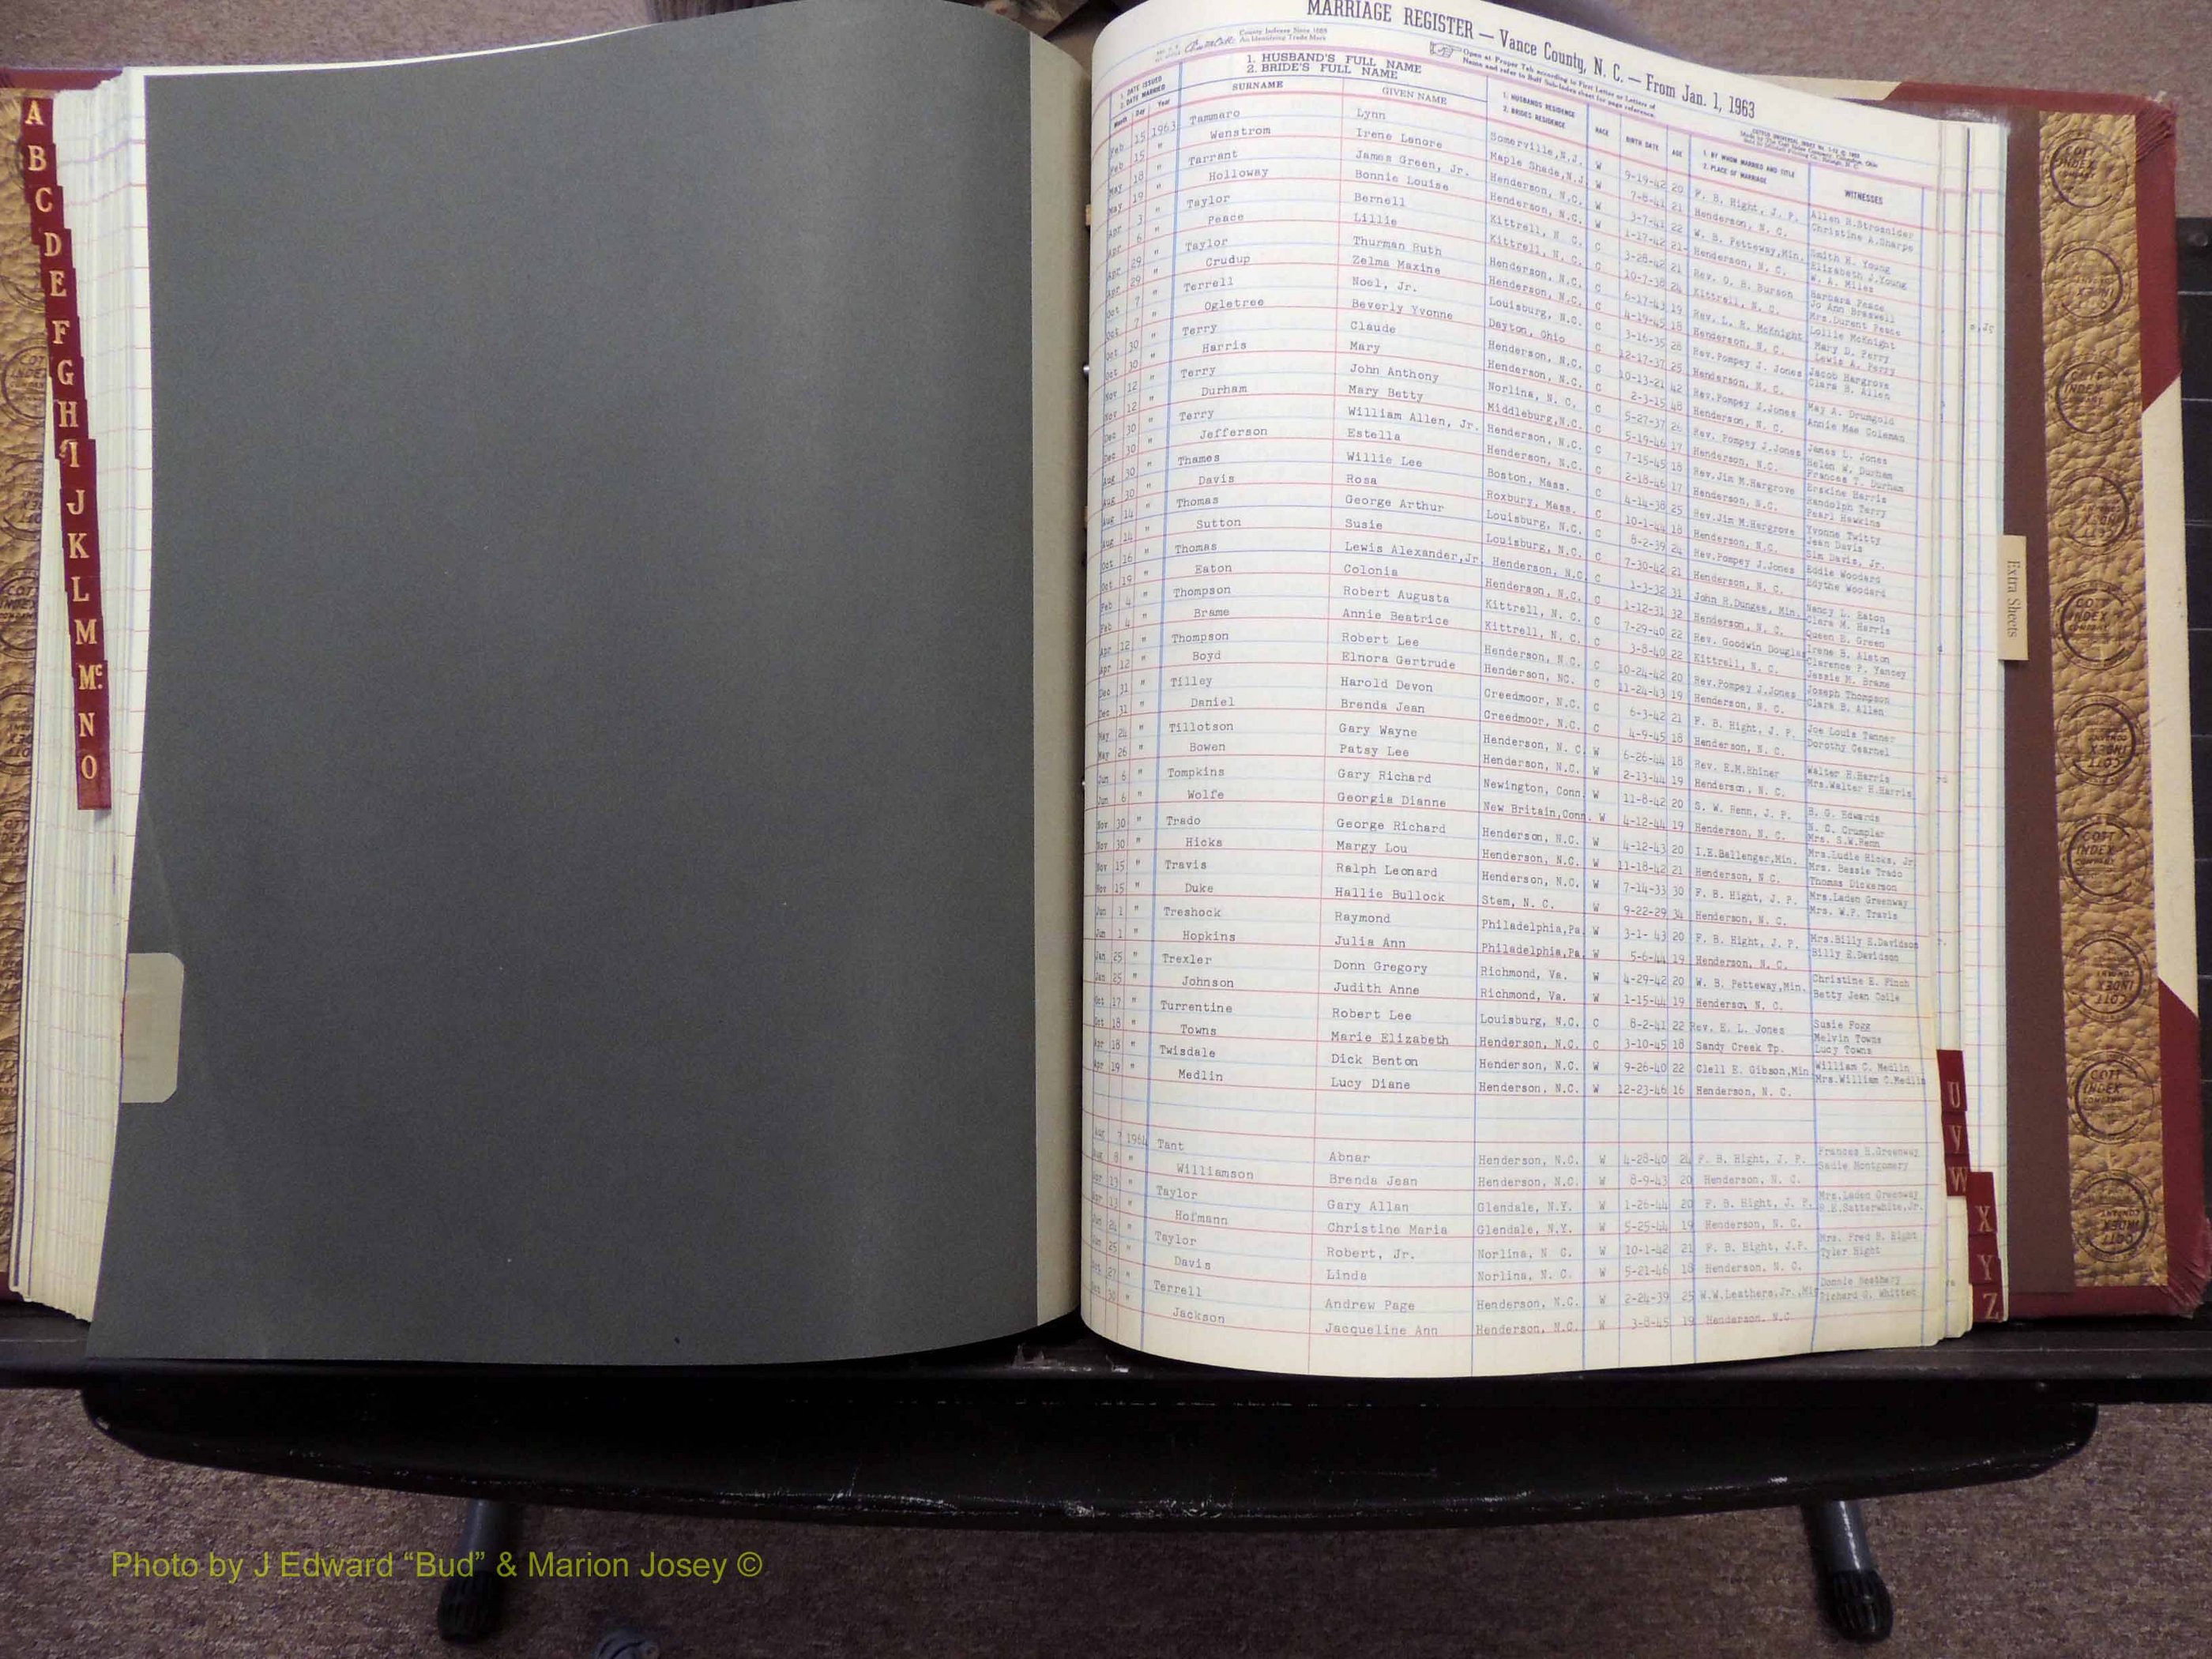 A
B
C
D
E
F
G
H
I
J
K
L
M
Mc.
N
O
MARRIAGE REGISTER — Vance County, N. C. — From Jan. 1, 1963
County Indexes Since 1888
An Identifying Trade Mark
Open at Proper Tab according to First Letter or Letters of
Name and refer to Buff Sub-Index sheet for page reference.
1. DATE ISSUED
2. DATE MARRIED
Month Day Year
1. HUSBAND'S FULL NAME
2. BRIDE'S FULL NAME
SURNAME GIVEN NAME
1. HUSBANDS RESIDENCE
2. BRIDES RESIDENCE
RACE BIRTH DATE AGE
1. BY WHOM MARRIED AND TITLE
2. PLACE OF MARRIAGE
WITNESSES
Feb 15 1963 Tammaro Lynn Somerville,N.J. W 9-19-42 20 F. B. Hight, J. P. Allen H.Strosnider
Feb 15 " Wenstrom Irene Lenore Maple Shade,N.J. W 7-8-41 21 Henderson, N. C. Christine A.Sharpe
May 18 " Tarrant James Green, Jr. Henderson, N.C. W 3-7-41 22 W. B. Petteway,Min. Smith H. Young
May 19 Holloway Bonnie Louise Henderson, N.C. W 1-17-42 21 Henderson, N. C. Elizabeth J.Young
W. A. Miles
Apr 3 " Taylor Bernell Kittrell, N C. C 3-28-42 21 Rev. O. H. Burson Barbara Peace
Jo Ann Braswell
Apr 6 " Peace Lillie Kittrell, N. C. C 10-7-38 24 Kittrell, N. C. Mrs.Durent Peace
Apr 29 " Taylor Thurman Ruth Henderson, N.C. C 6-17-43 19 Rev. L. R. McKnight Lollie McKnight
Apr 29 Crudup Zelma Maxine Henderson, N.C. C 4-19-45 18 Henderson, N. C. Mary D. Perry
Lewis A. Perry
Oct 7 " Terrell Noel, Jr. Louisburg, N.C. C 3-16-35 28 Rev.Pompey J. Jones Jacob Hargrove
Oct 7 " Ogletree Beverly Yvonne Dayton, Ohio C 12-17-37 25 Henderson, N. C. Clara B. Allen
Oct 30 " Terry Claude Henderson, N.C. C 10-13-21 42 Rev.Pompey J.Jones May A. Drumgold
Oct 30 " Harris Mary Henderson, N.C. C 2-3-15 48 Henderson, N. C. Annie Mae Coleman
Nov 12 " Terry John Anthony Norlina, N. C. C 5-27-37 26 Rev. Pompey J.Jones James L. Jones
Nov 12 " Durham Mary Betty Middleburg,N.C. C 5-19-46 17 Henderson, N.C. Helen W. Durham
Frances T. Durham
Dec 30 " Terry William Allen, Jr. Henderson, N.C. C 7-15-45 18 Rev.Jim M.Hargrove Erskine Harris
Randolph Terry
Dec 30 " Jefferson Estella Henderson, N.C. C 2-18-46 17 Henderson, N.C. Pearl Hawkins
Aug 30 " Thames Willie Lee Boston, Mass. C 4-14-38 25 Rev.Jim M.Hargrove Yvonne Twitty
Jean Davis
Aug 30 " Davis Rosa Roxbury, Mass. C 10-1-44 18 Henderson, N.C. Sim Davis, Jr.
Aug 14 " Thomas George Arthur Louisburg, N.C. C 8-2-39 24 Rev.Pompey J.Jones Eddie Woodard
Aug 14 " Sutton Susie Louisburg, N.C. C 7-30-42 21 Henderson, N. C. Edythe Woodard
Oct 16 " Thomas Lewis Alexander,Jr. Henderson, N.C. C 1-3-32 31 John R.Dungee, Min. Nancy L. Eaton
Clara M. Harris
Oct 19 " Eaton Colonia Henderson, N.C. C 1-12-31 32 Henderson, N. C. Queen E. Green
Feb 4 " Thompson Robert Augusta Kittrell, N. C. C 7-29-40 22 Rev. Goodwin Douglas Irene B. Alston
Clarence P. Yancey
Feb 4 " Brame Annie Beatrice Kittrell, N. C. C 3-8-40 22 Kittrell, N. C. Jessie M. Brame
Apr 12 " Thompson Robert Lee Henderson, N. C. C 10-24-42 20 Rev.Pompey J.Jones Joseph Thompson
Apr 12 " Boyd Elnora Gertrude Henderson, NC. C 11-24-43 19 Henderson, N. C. Clara B. Allen
Dec 31 " Tilley Harold Devon Creedmoor, N.C. C 6-3-42 21 F. B. Hight, J. P. Joe Louis Tanner
Dec 31 " Daniel Brenda Jean Creedmoor, N.C. C 4-9-45 18 Henderson, N. C. Dorothy Cearnel
May 24 " Tillotson Gary Wayne Henderson, N. C. W 6-26-44 18 Rev. E.M.Rhiner Walter H.Harris
May 26 " Bowen Patsy Lee Henderson, N.C. W 2-13-44 19 Henderson, N. C. Mrs.Walter H.Harris
Jun 6 " Tompkins Gary Richard Newington, Conn. W 11-8-42 20 S. W. Renn, J. P. B. G. Edwards
N. C. Crumpler
Jun 6 " Wolfe Georgia Dianne New Britain,Conn. W 4-12-44 19 Henderson, N. C. Mrs. S.W.Renn
Nov 30 " Trado George Richard Henderson, N.C. W 4-12-43 20 I.E.Ballenger,Min. Mrs.Ludie Hicks, Jr
Mrs. Bessie Trado
Nov 30 " Hicks Margy Lou Henderson, N.C. W 11-18-42 21 Henderson, N. C. Thomas Dickerson
Nov 15 " Travis Ralph Leonard Henderson, N.C. W 7-14-33 30 F. B. Hight, J. P. Mrs.Laden Greenway
Nov 15 " Duke Hallie Bullock Stem, N. C. W 9-22-29 34 Henderson, N. C. Mrs. W.P. Travis
Jun 1 " Treshock Raymond Philadelphia,Pa. W 3-1- 43 20 F. B. Hight, J. P. Mrs.Billy E.Davidson
Jun 1 " Hopkins Julia Ann Philadelphia,Pa. W 5-6-44 19 Henderson, N. C. Billy E.Davidson
Jan 25 " Trexler Donn Gregory Richmond, Va. W 4-29-42 20 W. B. Petteway,Min. Christine E. Finch
Jan 25 " Johnson Judith Anne Richmond, Va. W 1-15-44 19 Henderson, N. C. Betty Jean Coile
Oct 17 " Turrentine Robert Lee Louisburg, N.C. C 8-2-41 22 Rev. E. L. Jones Susie Fogg
Melvin Towns
Oct 18 " Towns Marie Elizabeth Henderson, N.C. C 3-10-45 18 Sandy Creek Tp. Lucy Towns
Apr 18 " Twisdale Dick Benton Henderson, N.C. W 9-26-40 22 Clell E. Gibson,Min William C. Medlin
Apr 19 " Medlin Lucy Diane Henderson, N.C. W 12-23-46 16 Henderson, N. C. Mrs.William C.Medlin
Aug 7 1964 Tant Abnar Henderson, N.C. W 4-28-40 24 F. B. Hight, J. P. Frances H.Greenway
Aug 8 " Williamson Brenda Jean Henderson, N.C. W 8-9-43 20 Henderson, N. C. Sadie Montgomery
Apr 13 " Taylor Gary Allan Glendale, N.Y. W 1-26-44 20 F. B. Hight, J. P. Mrs.Laden Greenway
Apr 13 " Hofmann Christine Maria Glendale, N.Y. W 5-25-44 19 Henderson, N. C. R.E.Satterwhite,Jr.
Jun 24 " Taylor Robert, Jr. Norlina, N C. W 10-1-42 21 F. B. Hight, J.P. Mrs. Fred B. Hight
Jun 25 " Davis Linda Norlina, N. C. W 5-21-46 18 Henderson, N. C. Tyler Hight
27 " Terrell Andrew Page Henderson, N.C. W 2-24-39 25 W.W.Leathers,Jr.,Min
30 " Jackson Jacqueline Ann Henderson, N.C. W 3-8-45 19 Henderson. N.C. Richard G. Whitten
Extra Sheets
U
V
W
X
Y
Z
COTT
INDEX
COMPANY
Photo by J Edward “Bud” & Marion Josey ©